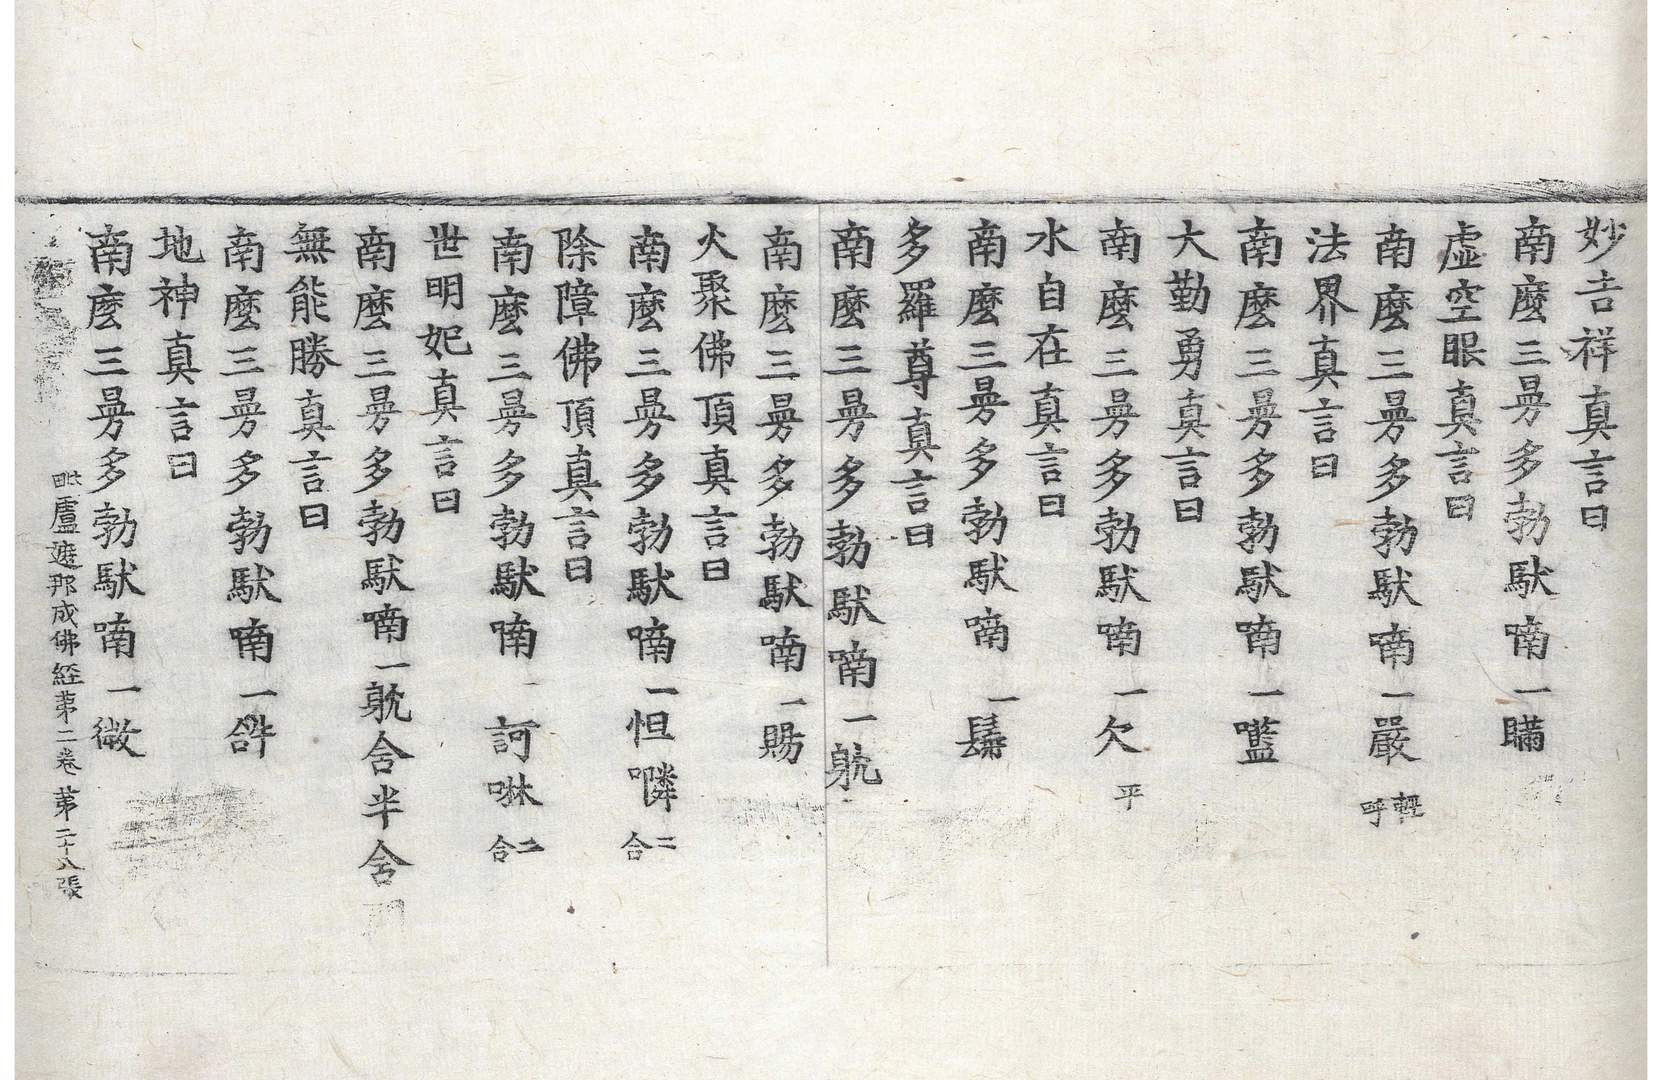 妙吉祥真言曰
南麽三曼多勃馱喃一瞞
虛空眼真言曰
南麽三曼多勃馱喃一嚴輕呼
法界真言曰
南麽三曼多勃馱喃一㘕
大勤勇真言曰
南麽三曼多勃馱喃一欠平
水自在真言曰
南麽三曼多勃馱喃一髯
多羅尊真言曰
南麽三曼多勃馱喃一躭
火聚佛頂真言曰
南麽三曼多勃馱喃一賜
除障佛頂真言曰
南麽三曼多勃馱喃一怛㗲二合
世明妃真言曰
南麽三曼多勃馱喃一訶啉二合
無能勝真言曰
南麽三曼多勃馱喃一躭含半含
地神真言曰
南麽三曼多勃馱喃一
南麽三曼多勃馱喃一微
毗盧遮那成佛經第二卷 第二十八張